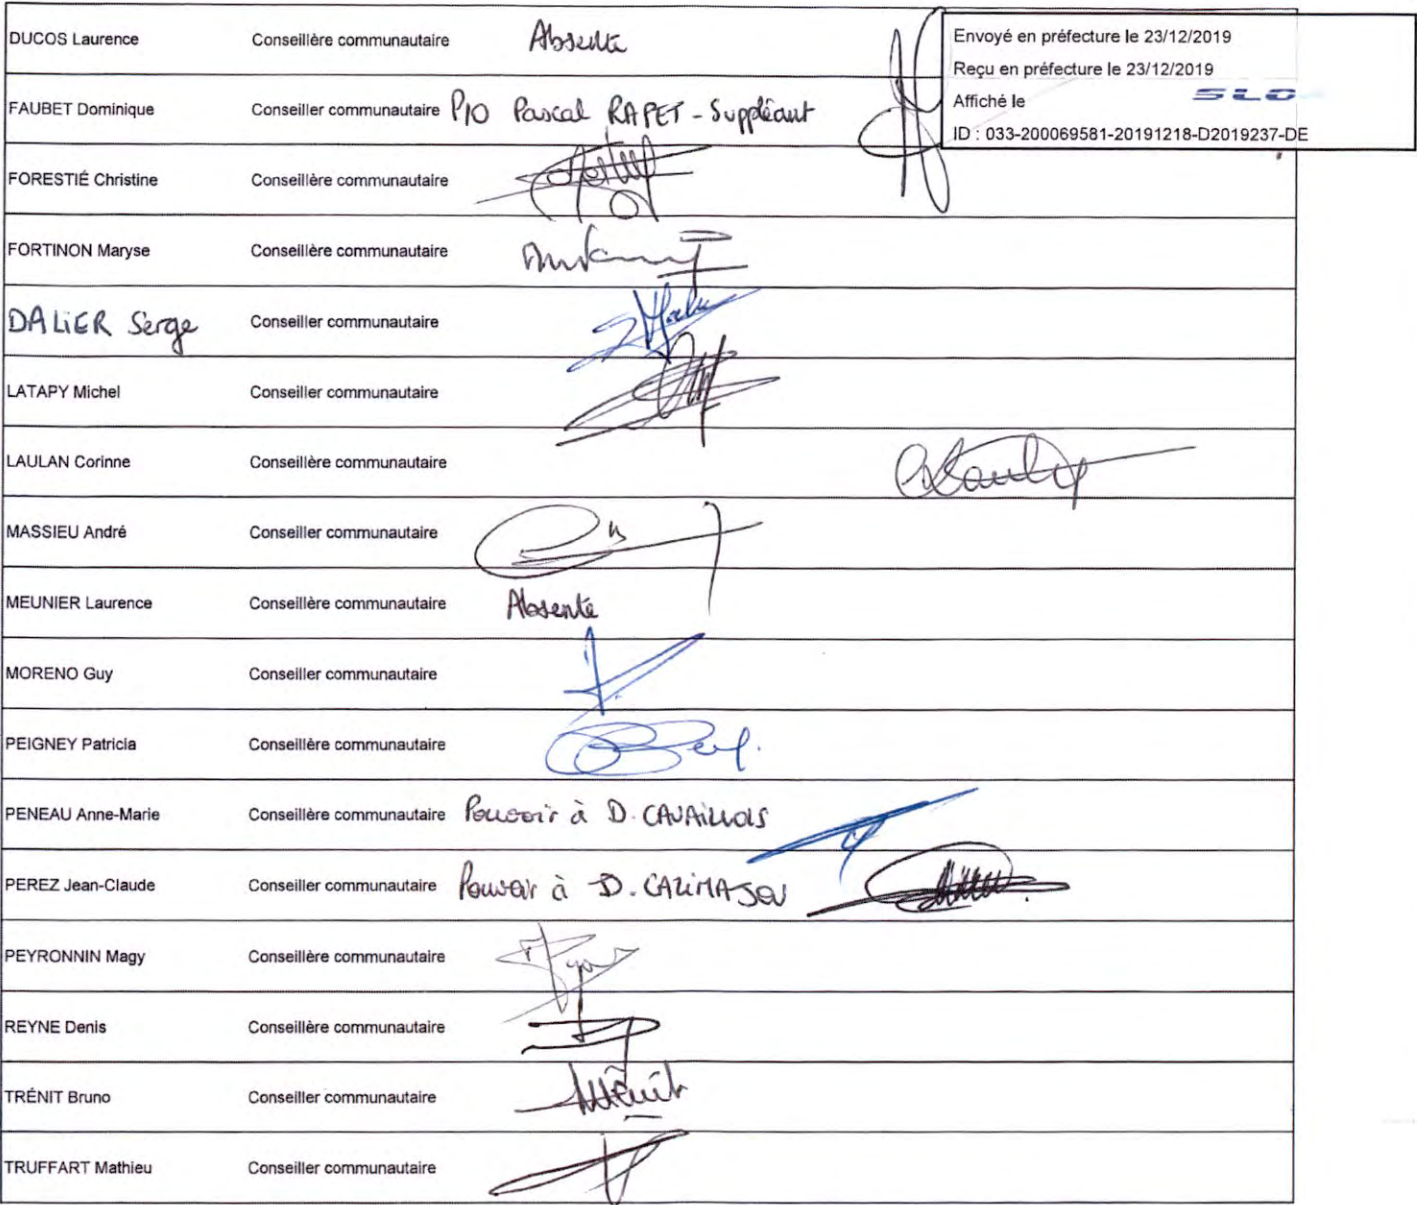 Envoyé en préfecture le 23/12/2019
Reçu en préfecture le 23/12/2019
Affiché le SLO
ID : 033-200069581-20191218-D2019237-DE
DUCOS Laurence Conseillère communautaire Absente
FAUBET Dominique Conseiller communautaire P/O Pascal RAPET - Suppléant
FORESTIÉ Christine Conseillère communautaire
FORTINON Maryse Conseillère communautaire
DALIER Serge Conseiller communautaire
LATAPY Michel Conseiller communautaire
LAULAN Corinne Conseillère communautaire
MASSIEU André Conseiller communautaire
MEUNIER Laurence Conseillère communautaire Absente
MORENO Guy Conseiller communautaire
PEIGNEY Patricia Conseillère communautaire
PENEAU Anne-Marie Conseillère communautaire Pouvoir à D. CAVAILLOLS
PEREZ Jean-Claude Conseiller communautaire Pouvoir à D. CAZIMAJOU
PEYRONNIN Magy Conseillère communautaire
REYNE Denis Conseillère communautaire
TRÉNIT Bruno Conseiller communautaire
TRUFFART Mathieu Conseiller communautaire